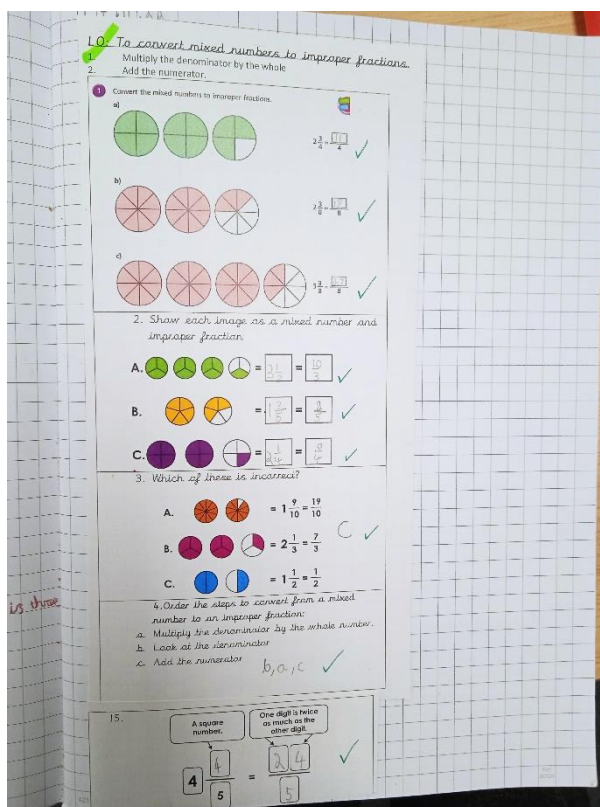 LO: To convert mixed numbers to improper fractions.
1. Multiply the denominator by the whole
2. Add the numerator.
1 Convert the mixed numbers to improper fractions.
a)
2 3/4 = 11/4
b)
2 3/8 = /8
c)
3 3/8 = 27/8
2. Show each image as a mixed number and
improper fraction
A. = 3 1/3 = 10/3
B. = 1 /5 = /5
C. = 2 1/4 = 9/4
3. Which of these is incorrect?
A. = 1 9/10 = 19/10
B. = 2 1/3 = 7/3
C
C. = 1 1/2 = 1/2
4. Order the steps to convert from a mixed
number to an improper fraction:
a Multiply the denominator by the whole number.
b Look at the denominator
c Add the numerator
b, a, c
is three
15.
A square
number.
One digit is twice
as much as the
other digit.
4 4/5 = 24/5